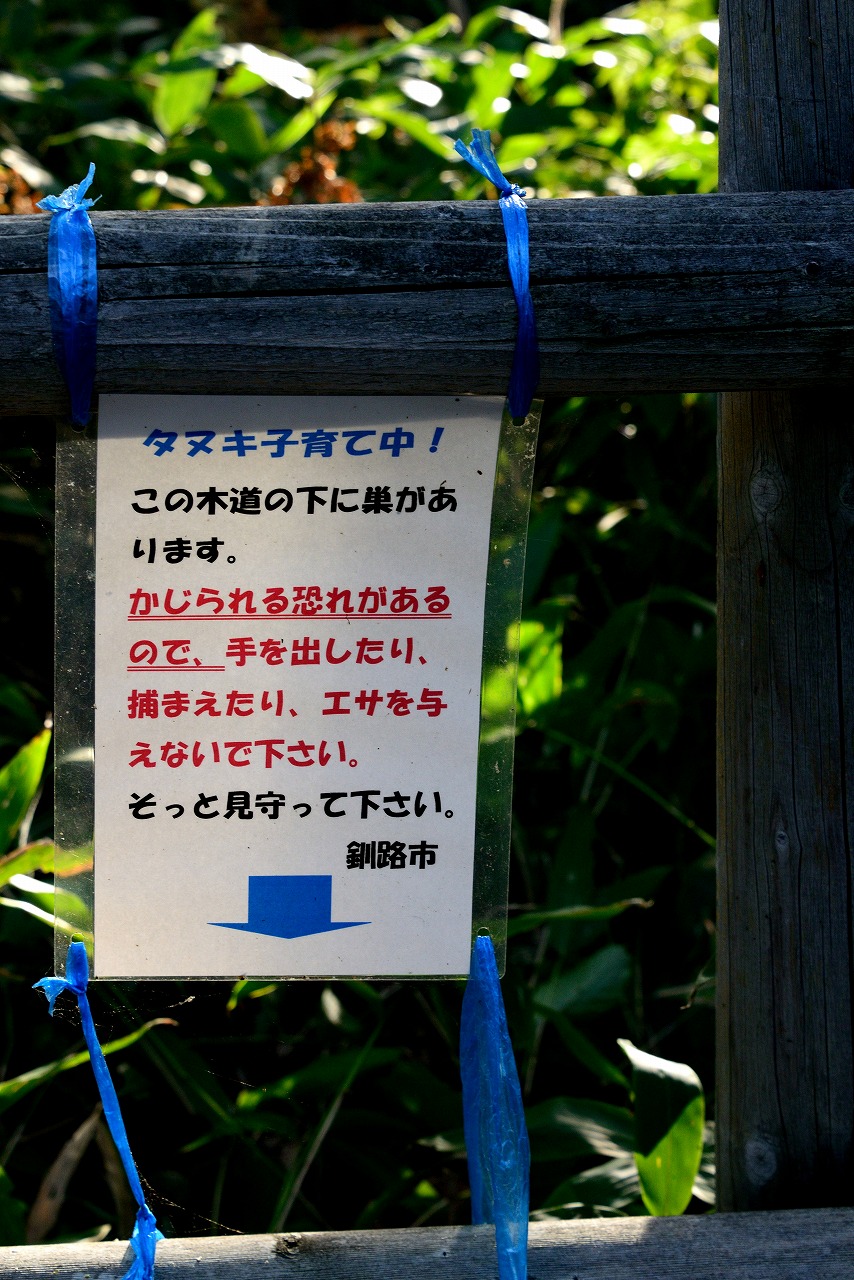 タヌキ子育て中！
この木道の下に巣があ
ります。
かじられる恐れがある
ので、手を出したり、
捕まえたり、エサを与
えないで下さい。
そっと見守って下さい。
釧路市